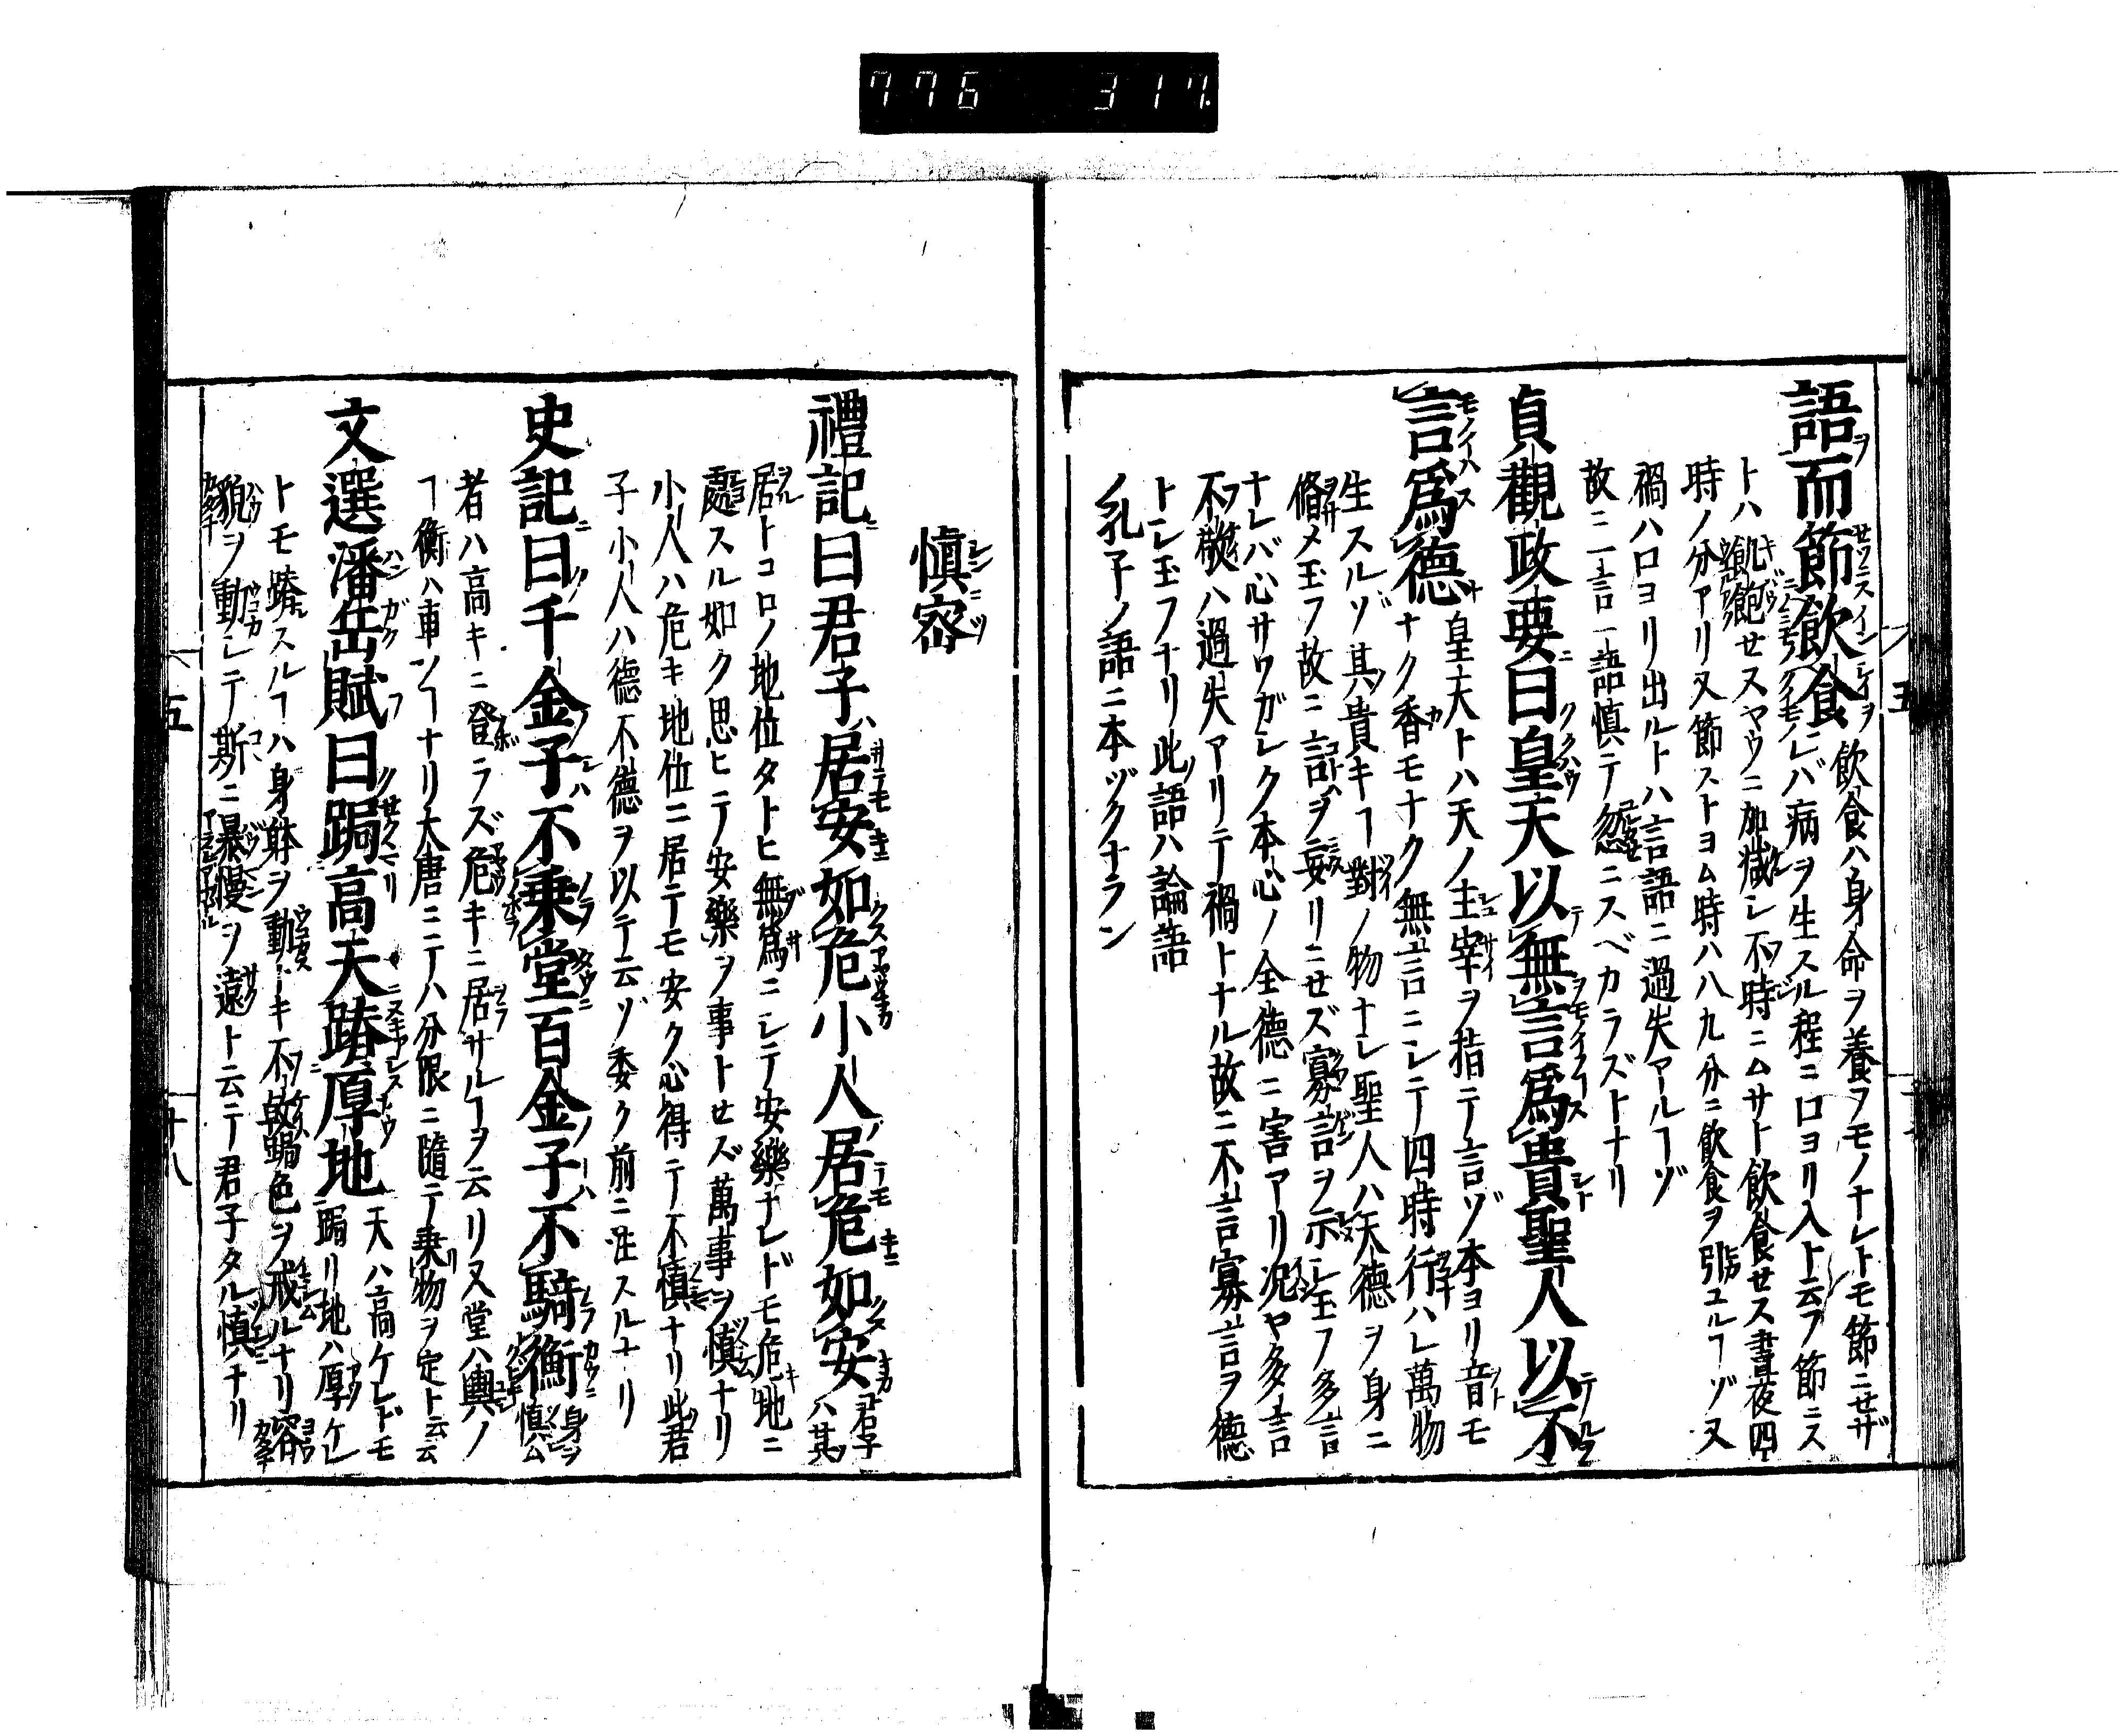 776 317.
語而節飲食 飲食ハ身命ヲ養フモノナレトモ節ニせザ
レバ病ヲ生スル程ニ口ヨリ入ト云フ節ニス
トハ飢飽せスヤウニ加減シ不時ニムサト飲食せス晝夜四
時ノ分アリ又節ストヨム時ハ八九分ニ飲食ヲ引ユルヿゾ又
禍ハ口ヨリ出ルトハ言語ニ過失アールヿゾ
故ニ一言一語慎テ忽ニスベカラズトナリ
貞觀政要曰皇天以無言爲貴聖人以不
言爲德 皇天トハ天ノ主宰ヲ指テ言ゾ本ヨリ音モ
ナク香モナク無言ニシテ四時行ハレ萬物
生スルゾ其貴キヿ對ノ物ナシ聖人ハ天德ヲ身ニ
脩メ玉フ故ニ言ヲ妄リニせズ寡言ヲ示シ玉フ多言
ナレバ心サワガシク本心ノ全德ニ害アリ况ヤ多言
不敬ハ過失アリテ禍トナル故ニ不言寡言ヲ德
トシ玉フナリ此語ハ論語
ノ孔子ノ語ニ本ヅクナラン
慎密
禮記曰君子居安如危小人居危如安 君子ハ其
居トコロノ地位タトヒ無爲ニシテ安樂ナレドモ危地ニ
處スル如ク思ヒテ安樂ヲ事トせズ萬事ヲ慎ナリ
小人ハ危キ地位ニ居テモ安ク心得テ不慎ナリ此君
子小人ハ德不德ヲ以テ云ゾ委ク前ニ注スルナリ
史記曰千金子不乗堂百金子不騎衡 身ヲ慎ム
者ハ高キニ登ラズ危キニ居サルヿヲ云リ又堂ハ輿ノ
ヿ衡ハ車ノヿナリ大唐ニテハ分限ニ隨テ乗物ヲ定ト云云
文選潘岳賦曰跼高天蹐厚地 天ハ高ケレドモ
跼リ地ハ厚ケレ
トモ蹐スルヿハ身躰ヲ動ーキ不敬色ヲ戒ルナリ容
貌ヲ動シテ斯ニ暴慢ヲ遠ト云テ君子タル慎ナリ
五
十八